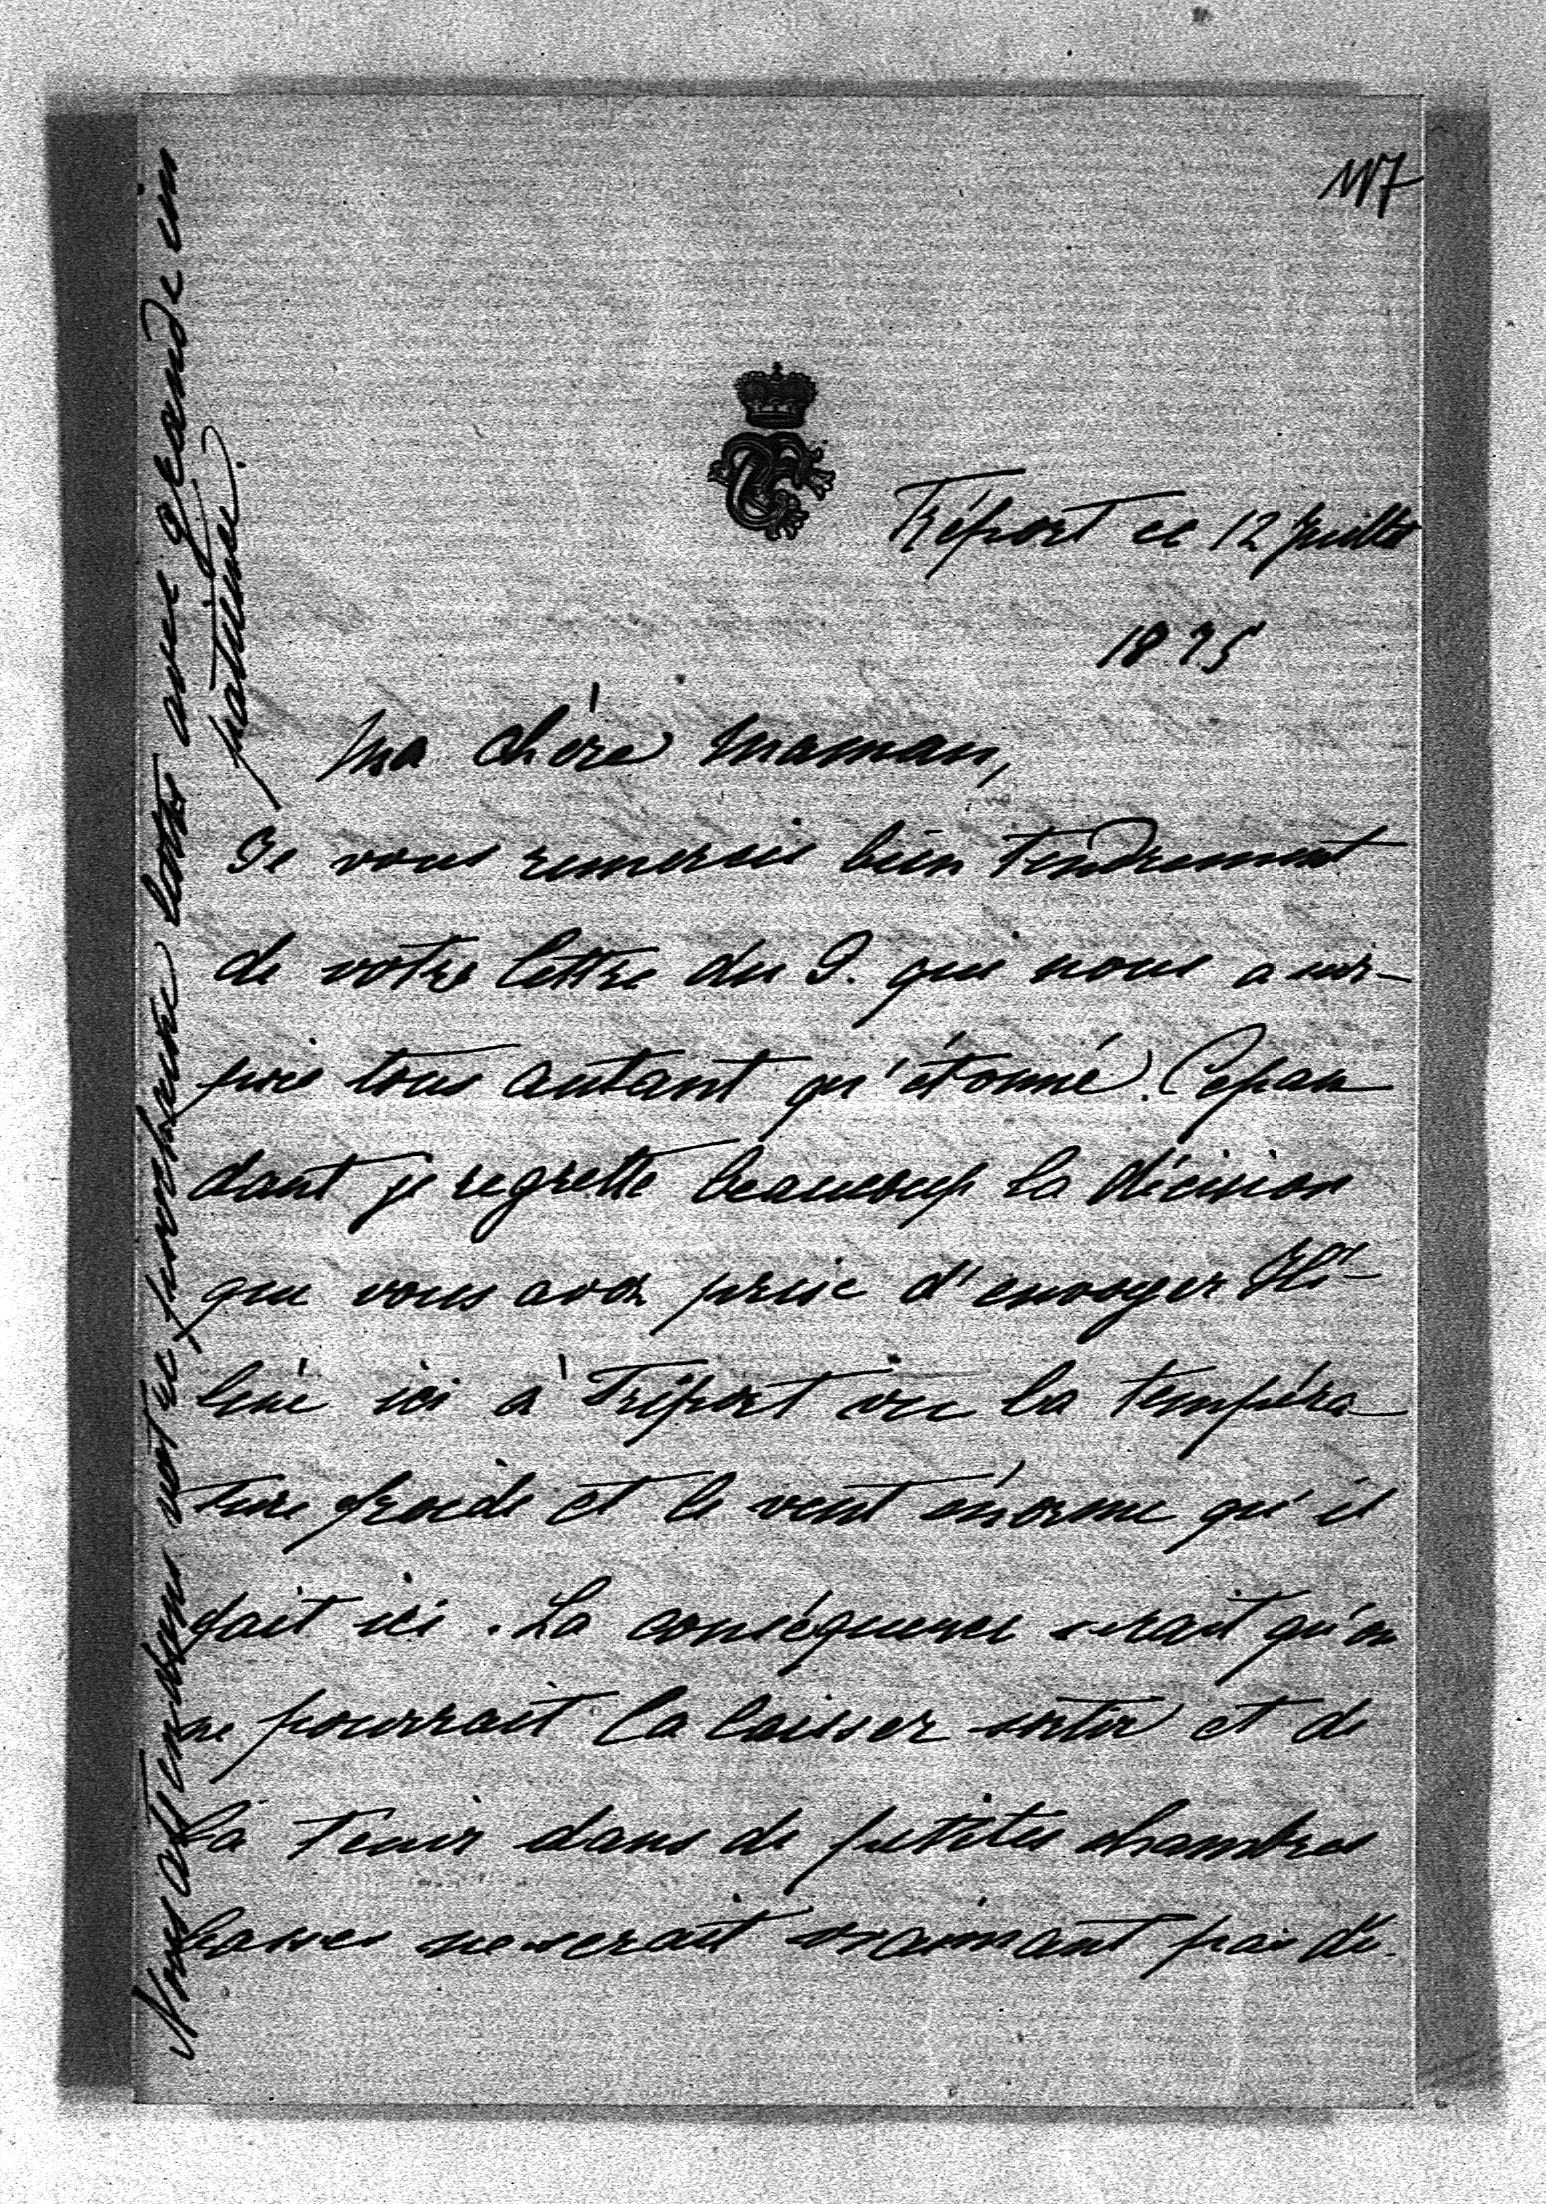 117
Tréport ce 12 Juillet
1875
Ma chère Maman,
Je vous remercie bien tendrement
de votre lettre du 9. qui nous a sur-
pris tous autant qu'étonné. Cepan
dant je regrette beaucoup la décision
que vous avez prise d'envoyer Hé-
lène ici à Tréport vu la tempéra-
ture froide et le vent énorme qu'il
fait ici. La conséquence serait qu'on
ne pourrait la laisser sortir et de
la tenir dans de petites chambres
basses ne serait vraimant pas di-
Nous attendons votre prochaine lettre avec grande im
patience.